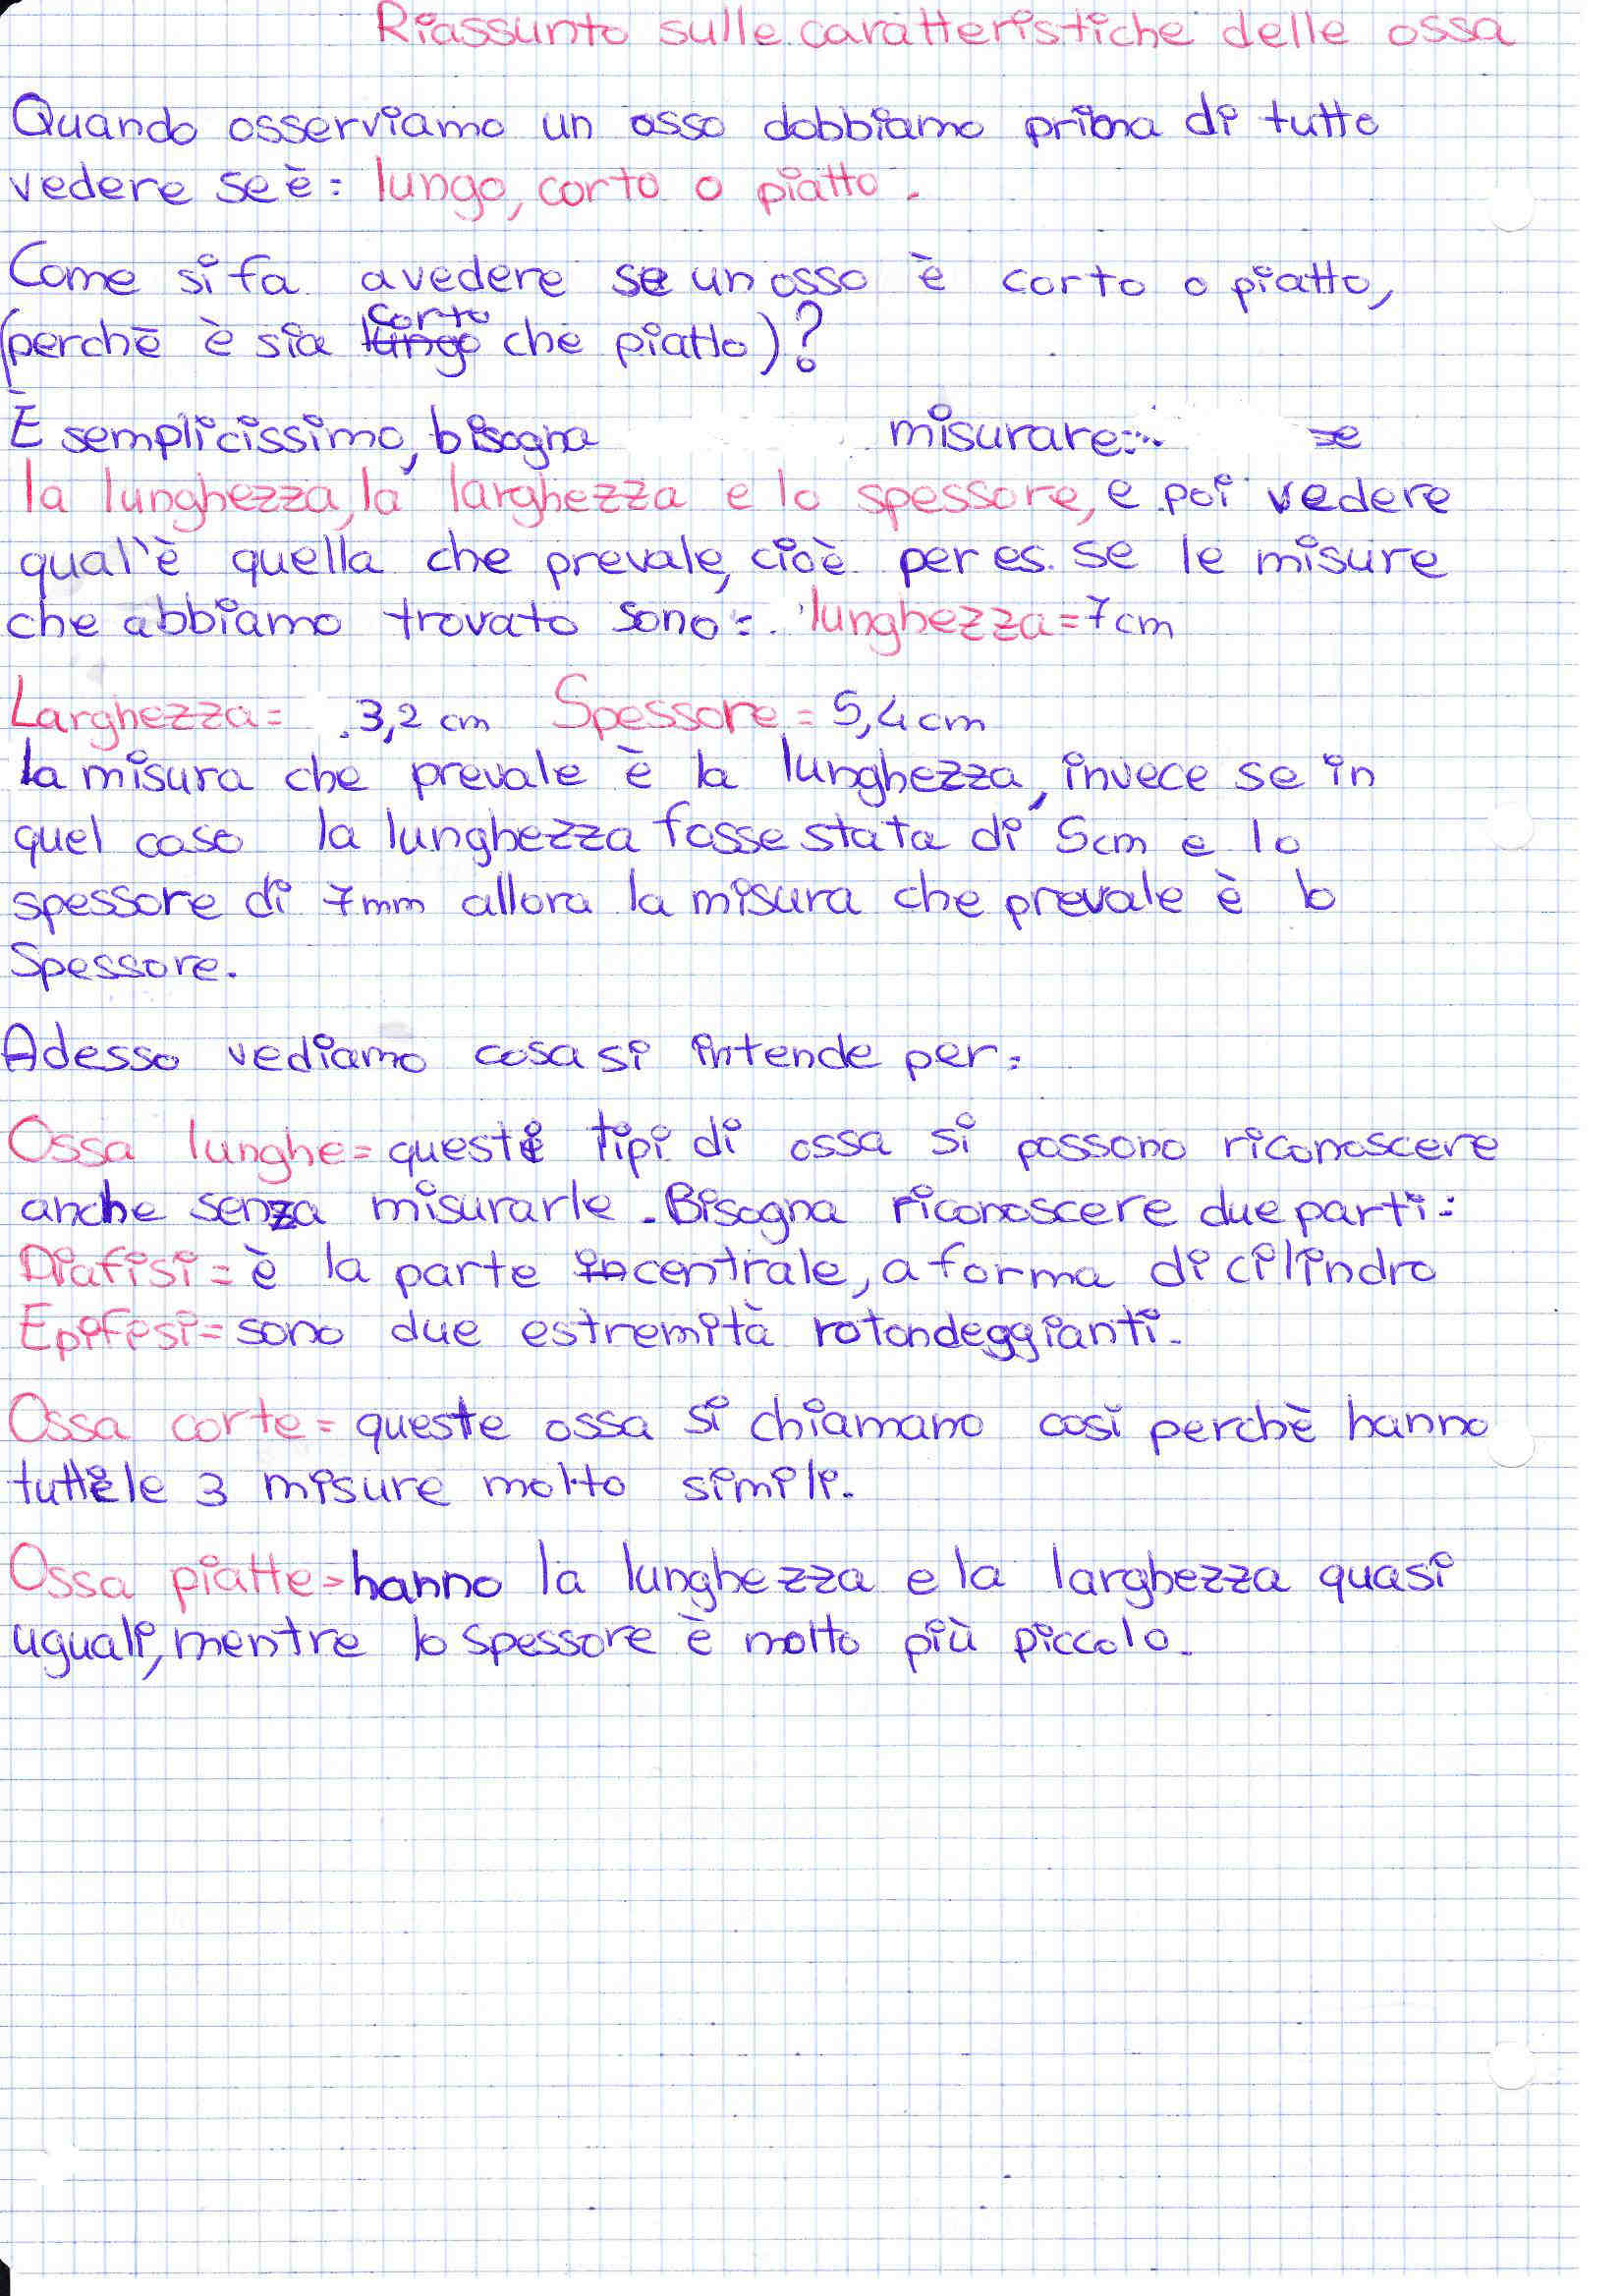 Riassunto sulle caratteristiche delle ossa
Quando osserviamo un osso dobbiamo prima di tutto
vedere se è: lungo, corto o piatto.
Come si fa a vedere se un osso è corto o piatto,
(perchè è sia lungo corto che piatto)?
È semplicissimo, bisogna misurare: se
la lunghezza, la larghezza e lo spessore, e poi vedere
qual'è quella che prevale, cioè per es. se le misure
che abbiamo trovato sono: lunghezza=7cm
Larghezza= 3,2 cm Spessore= 5,4 cm
la misura che prevale è la lunghezza, invece se in
quel caso la lunghezza fosse stata di 5cm e lo
spessore di 7mm allora la misura che prevale è lo
Spessore.
Adesso vediamo cosa si intende per:
Ossa lunghe= questi tipi di ossa si possono riconoscere
anche senza misurarle. Bisogna riconoscere due parti:
Diafisi= è la parte in centrale, a forma di cilindro
Epifisi= sono due estremità rotondeggianti.
Ossa corte= queste ossa si chiamano così perchè hanno
tutte le 3 misure molto simili.
Ossa piatte= hanno la lunghezza e la larghezza quasi
uguali, mentre lo spessore è molto più piccolo.